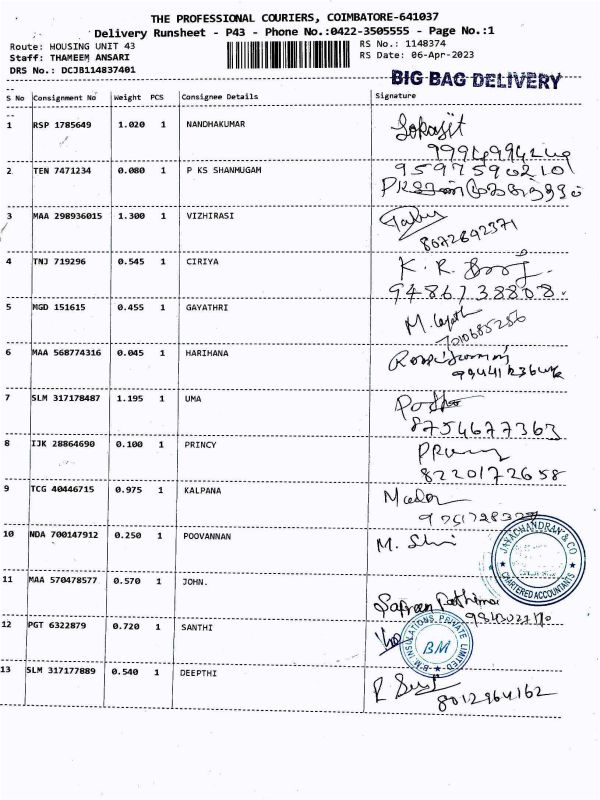 THE PROFESSIONAL COURIERS, COIMBATORE-641037
Delivery Runsheet - P43 - Phone No.:0422-3505555 - Page No.:1
Route: HOUSING UNIT 43 RS No.: 1148374
Staff: THAMEEM ANSARI RS Date: 06-Apr-2023
DRS No.: DCJB114837401
BIG BAG DELIVERY
S No Consignment No Weight PCS Consignee Details Signature
1 RSP 1785649 1.020 1 NANDHAKUMAR
2 TEN 7471234 0.080 1 P KS SHANMUGAM
9597590210
3 MAA 298936015 1.300 1 VIZHIRASI
8072692371
4 TNJ 719296 0.545 1 CIRIYA K. R.
9486738808.
5 MGD 151615 0.455 1 GAYATHRI
7010685256
6 MAA 568774316 0.045 1 HARIHANA
7 SLM 317178487 1.195 1 UMA
8754677363
8 IJK 28864690 0.100 1 PRINCY
8220172658
9 TCG 40446715 0.975 1 KALPANA
10 NDA 700147912 0.250 1 POOVANNAN M.
JAYACHANDRAN & CO
CHARTERED ACCOUNTANTS
11 MAA 570478577 0.570 1 JOHN.
12 PGT 6322879 0.720 1 SANTHI
B.M INSULATIONS PRIVATE LIMITED
BM
13 SLM 317177889 0.540 1 DEEPTHI
8012964162